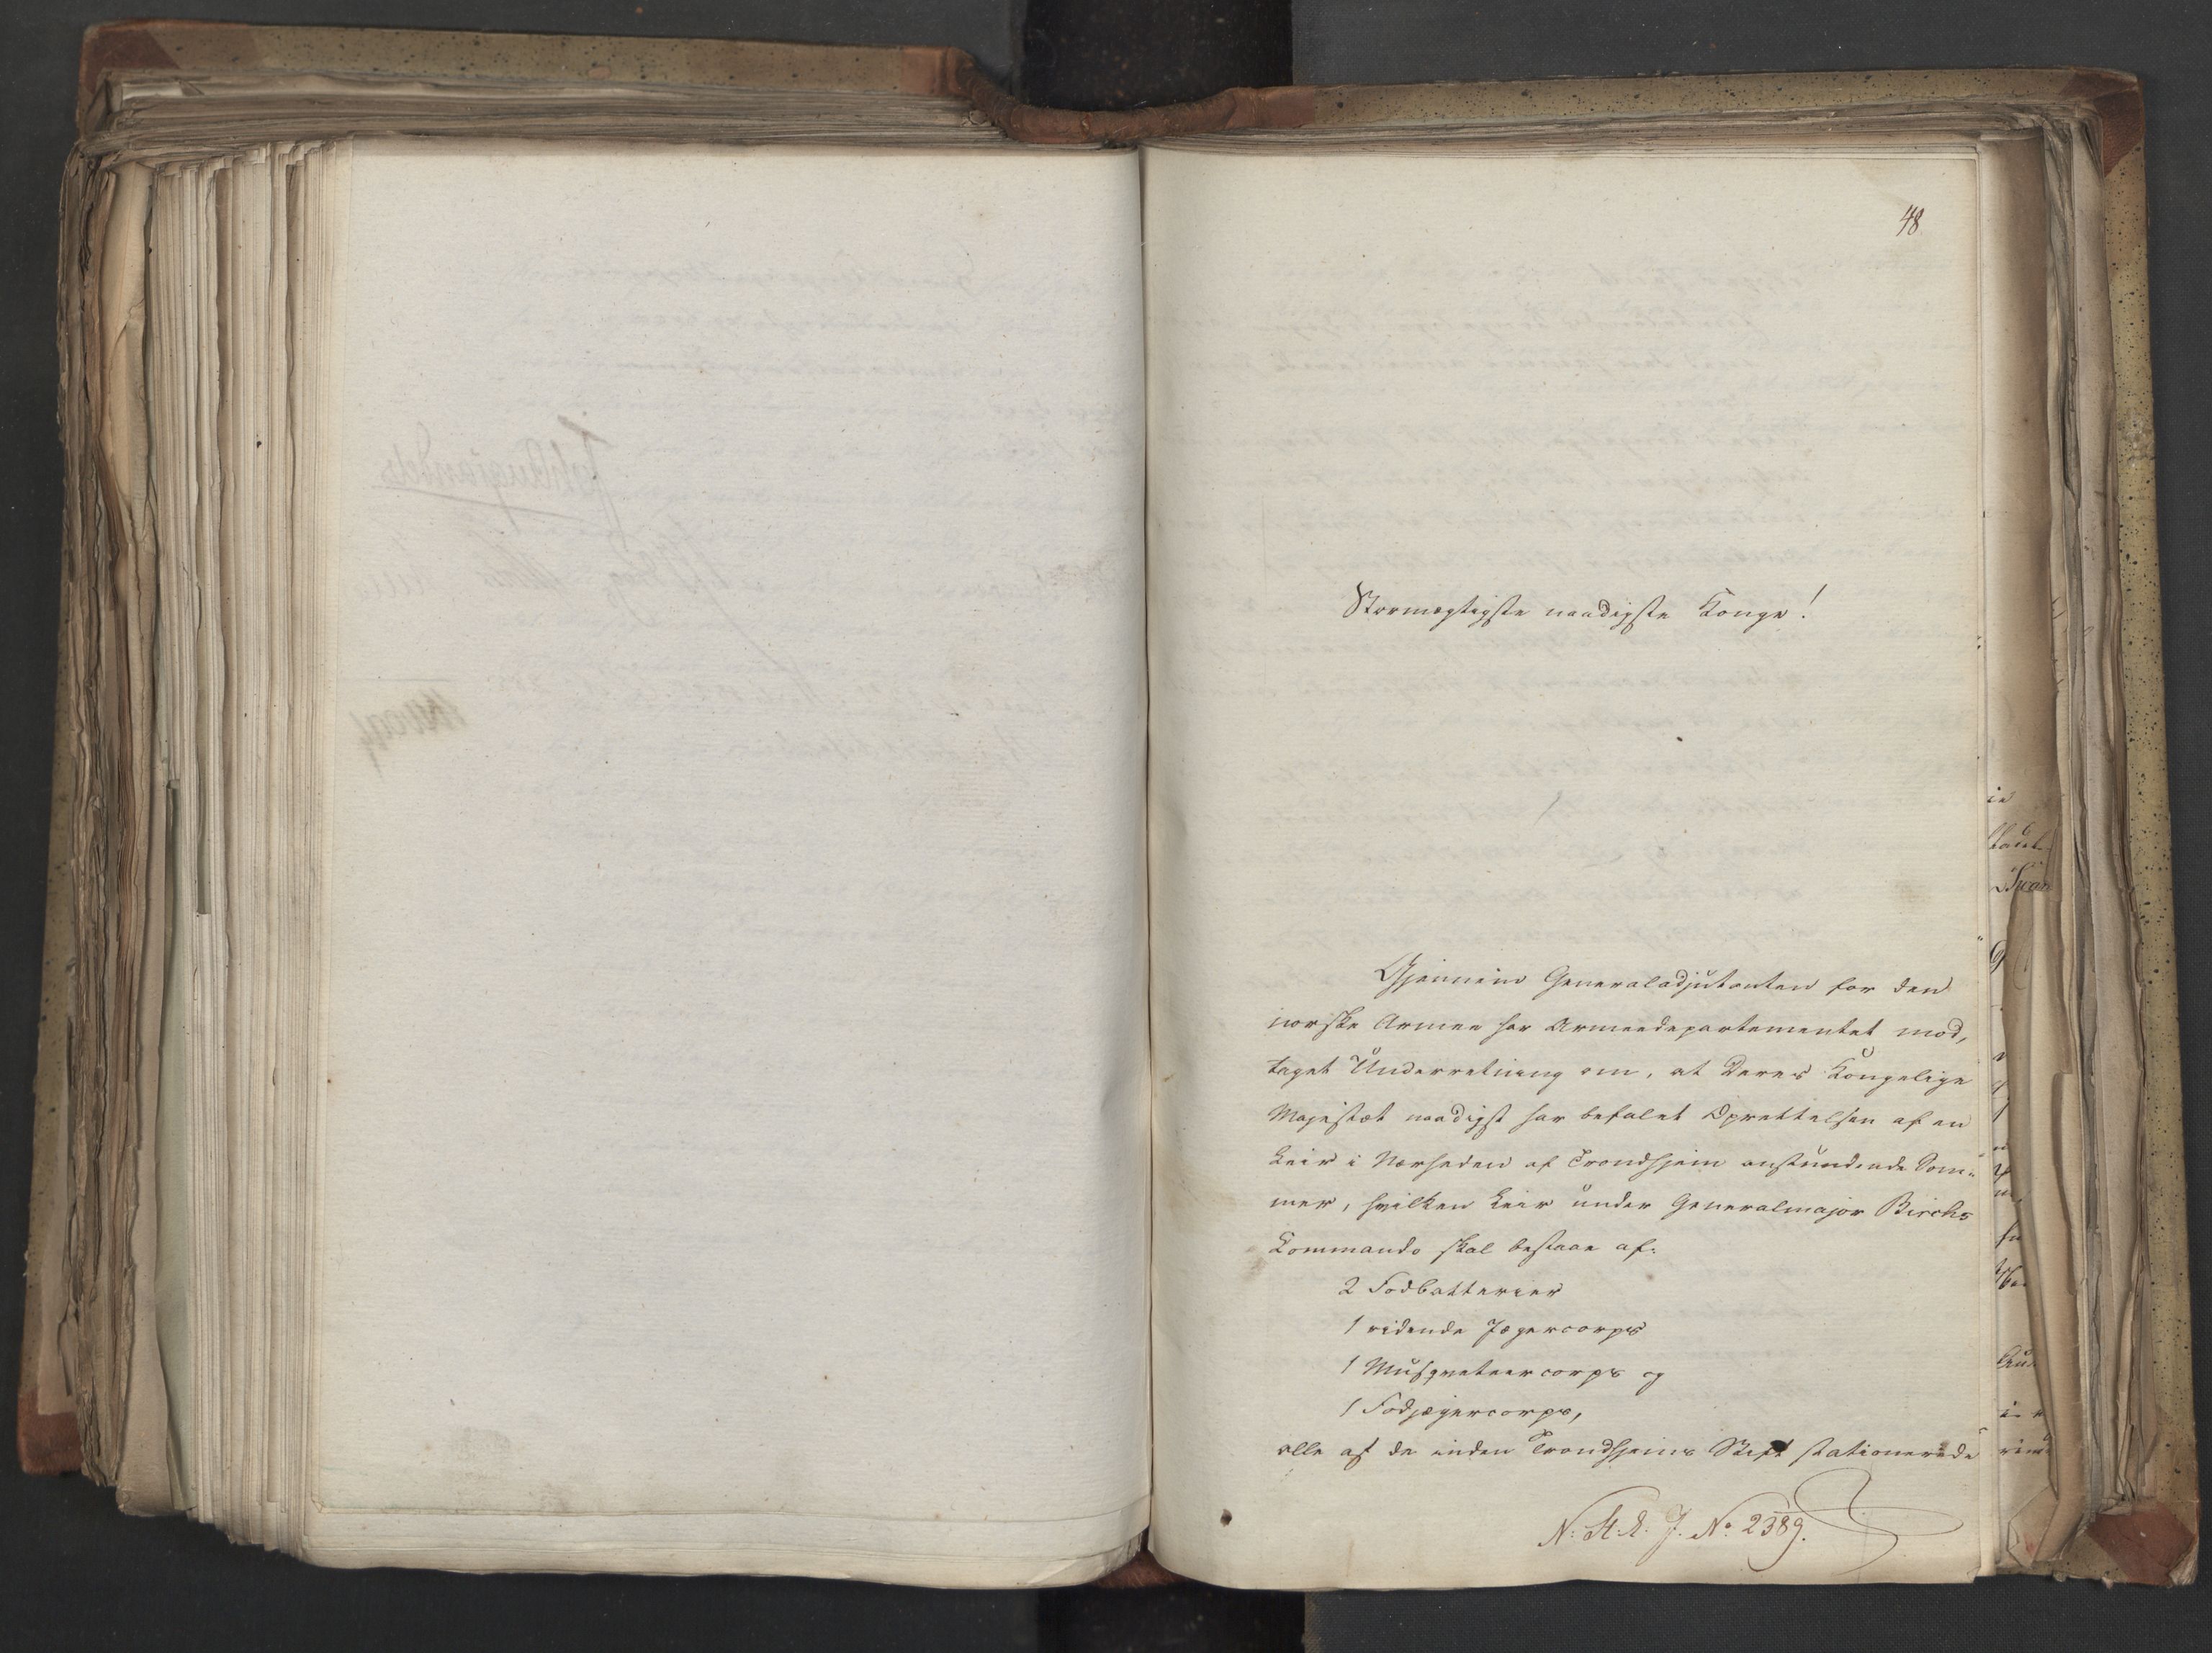 48
Stormægtigste naadigste Konge!
Gjennem Generaladjutanten for den
norske Armee har Armeedepartementet mod,
taget Underretning om, at Deres Kongelige
Majestæt naadigst har befalet Oprettelsen af en
Leir i Nærheden af Trondhjem anstundende Som-
mer, hvilken Leir under Generalmajor Birchs
Kommando skal bestaae af:
2 Fodbatterier
1 ridende Jægercorps
1 Musqueteercorps og
1 Fodjægercorps,
alle af de inden Trondhjems Stift stationerede
N: St. S. J. No. 2389.